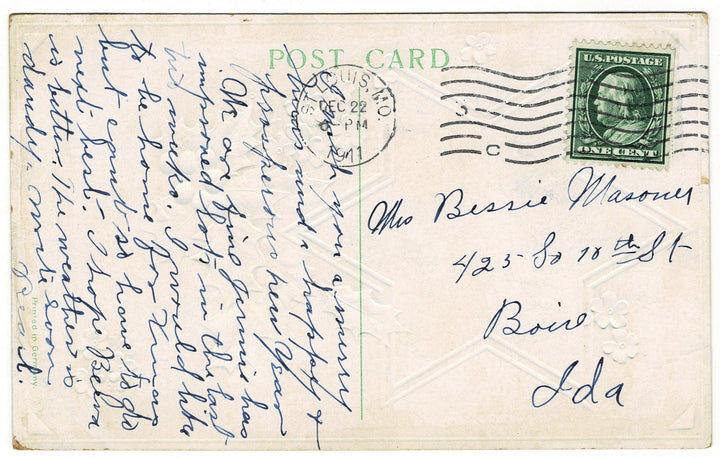 POST CARD
ST. LOUIS, MO.
DEC 22
PM
1911
U.S. POSTAGE
ONE CENT
C
Mrs Bessie Masoner
425 So 10th St
Boise
Ida
you a merry
Xmas and a happy &
prosperous new year
We are fine Jennie has
improved lots in the last
two weeks. I would like
to be home for Xmas
but cant so have to do
next best. I hope
is better. The weather is
dandy. write soon
Printed in Germany